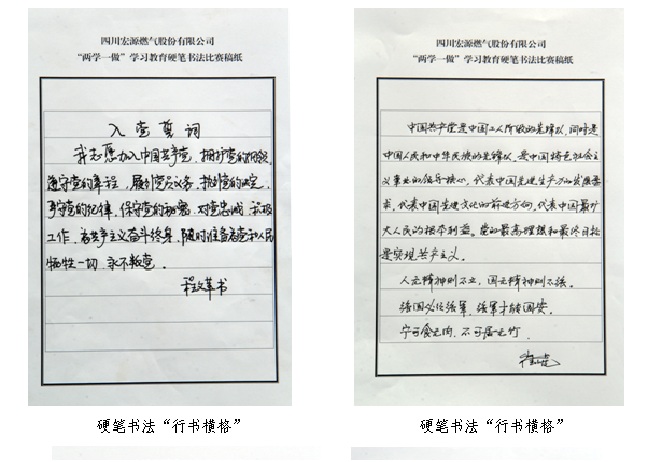 四川宏源燃气股份有限公司
“两学一做”学习教育硬笔书法比赛稿纸
入党誓词
我志愿加入中国共产党，拥护党的纲领，
遵守党的章程，履行党员义务，执行党的决定，
严守党的纪律，保守党的秘密，对党忠诚，积极
工作，为共产主义奋斗终身，随时准备为党和人民
牺牲一切，永不叛党。
程改革书
硬笔书法“行书横格”
四川宏源燃气股份有限公司
“两学一做”学习教育硬笔书法比赛稿纸
中国共产党是中国工人阶级的先锋队，同时是
中国人民和中华民族的先锋队，是中国特色社会主
义事业的领导核心，代表中国先进生产力的发展要
求，代表中国先进文化的前进方向，代表中国最广
大人民的根本利益。党的最高理想和最终目标
是实现共产主义。
人无精神则不立，国无精神则不强。
治国必先治党，治党才能国强。
宁可食无肉，不可居无竹
硬笔书法“行书横格”